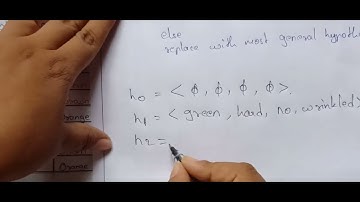 else
replace with most general hypoth
h0 = < ϕ, ϕ, ϕ, ϕ>.
h1 = < green, hard, no, wrinkled>
h2 =
orange
Orange